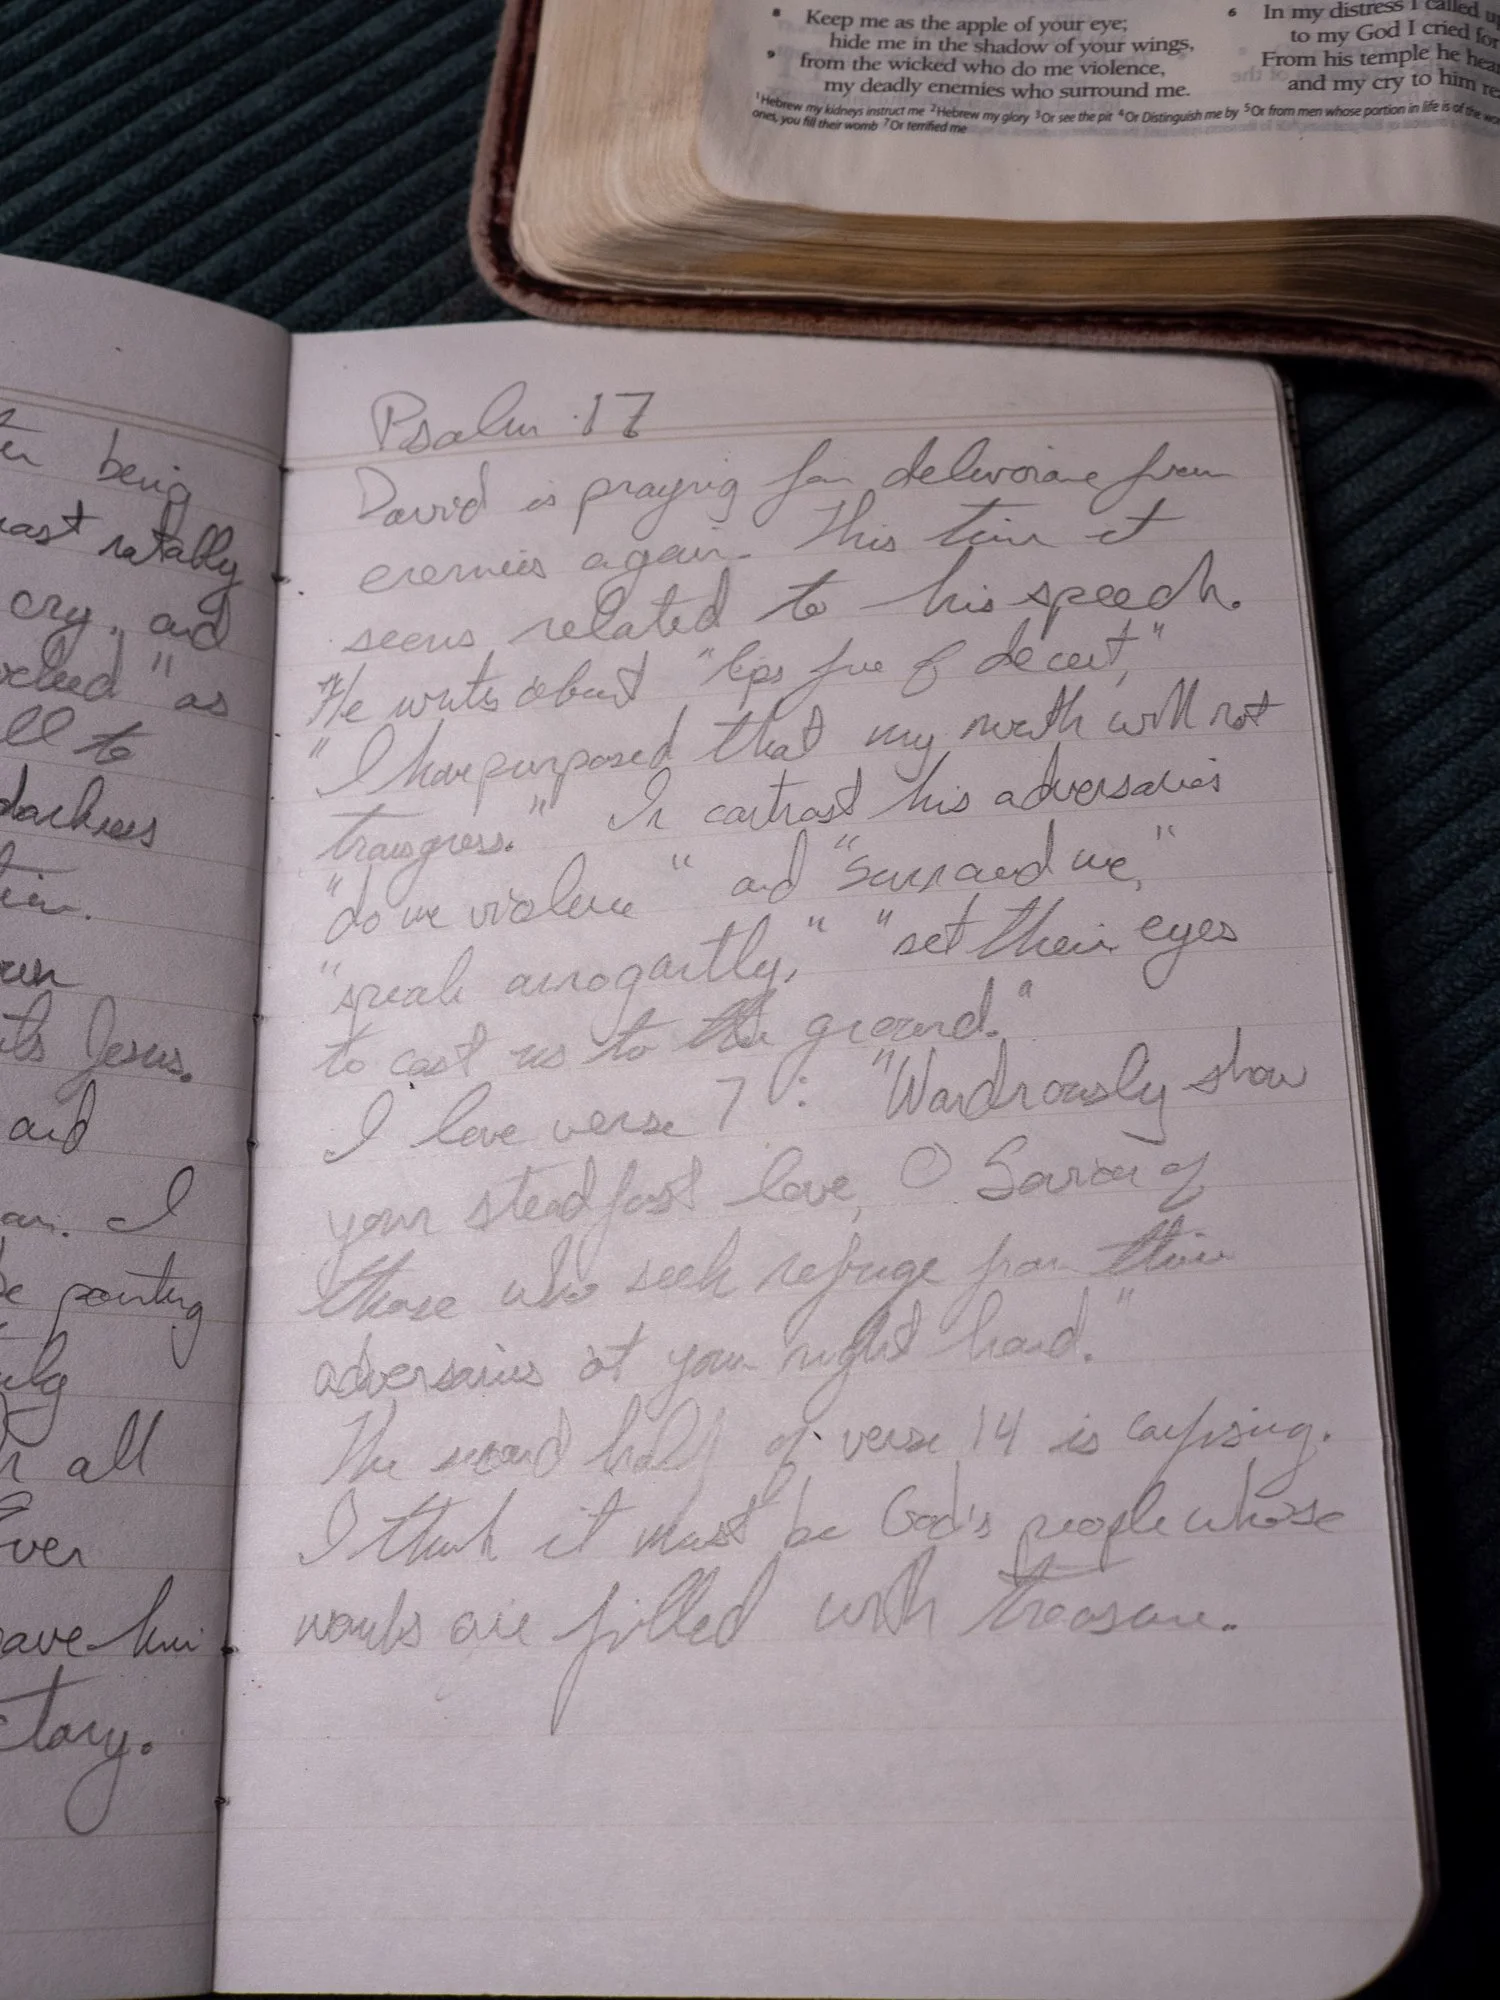 8 Keep me as the apple of your eye;
hide me in the shadow of your wings,
9 from the wicked who do me violence,
my deadly enemies who surround me.
6 In my distress I called
to my God I cried for
From his temple he
and my cry to him
1 Hebrew my kidneys instruct me 2 Hebrew my glory 3 Or see the pit 4 Or Distinguish me by 5 Or from men whose portion in life is of the
ones, you fill their womb 7 Or terrified me
being
notably
cry, and
" as
to
darkness
Jesus.
and
I
pointing
all
him.
Psalm 17
David is praying for deliverance from
enemies again. This time it
seems related to his speech.
He writes about "lips free of deceit,"
"I have purposed that my mouth will not
transgress." In contrast his adversaries
"do me violence" and "surround me,"
"speak arrogantly," "set their eyes
to cast us to the ground."
I love verse 7: "Wondrously show
your steadfast love, O Savior of
those who seek refuge from their
adversaries at your right hand."
The second half of verse 14 is confusing.
I think it must be God's people whose
wombs are filled with treasure.